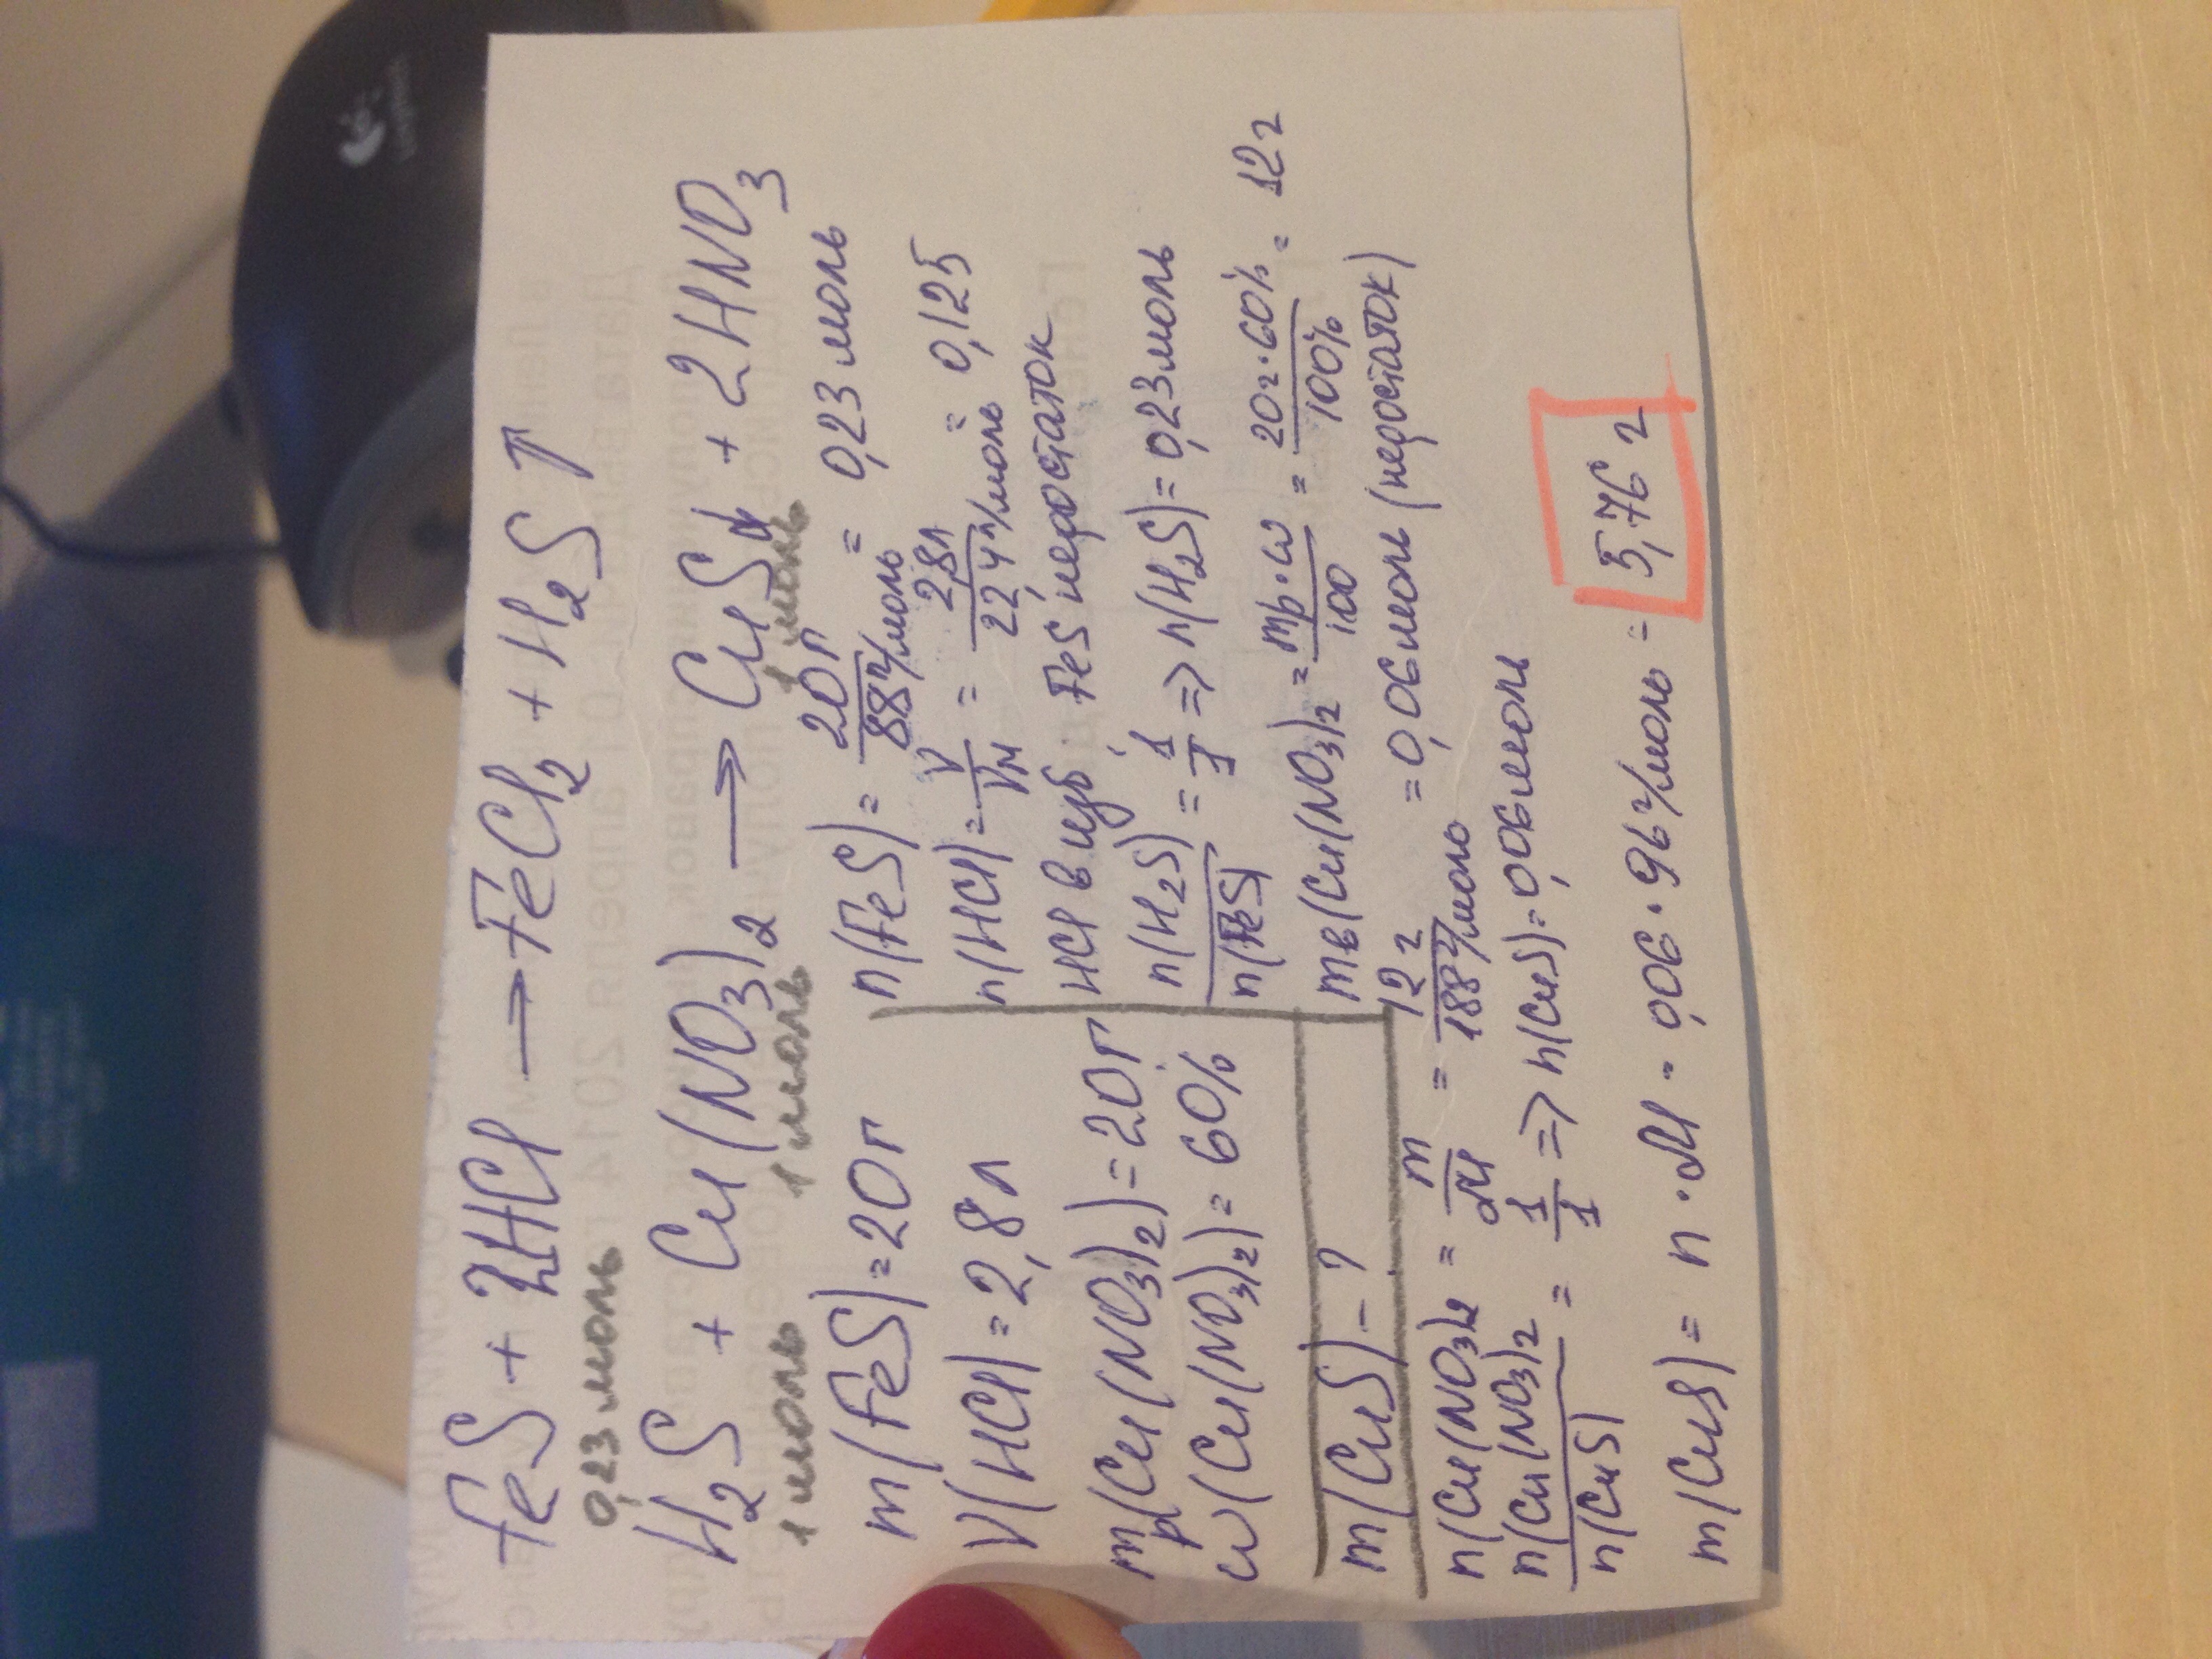 FeS + 2HCl → FeCl₂ + H₂S ↑
0,23 моль
H₂S + Cu(NO₃)₂ → CuS↓ + 2HNO₃
1 моль 1 моль 1 моль
m(FeS) = 20г
V(HCl) = 2,8л
mр(Cu(NO₃)₂) = 20г
ω(Cu(NO₃)₂) = 60%
m(CuS) - ?
n(FeS) = 20г / 88г/моль = 0,23 моль
n(HCl) = V / Vм = 2,8л / 22,4л/моль = 0,125
HCl в изб, FeS недостаток
n(H₂S) / n(FeS) = 1/1 => n(H₂S) = 0,23 моль
mв(Cu(NO₃)₂ = mр·ω / 100 = 20г·60% / 100% = 12г
n(Cu(NO₃)₂ = m / M = 12г / 188г/моль = 0,06 моль (недостаток)
n(Cu(NO₃)₂ / n(CuS) = 1/1 => n(CuS) = 0,06 моль
m(CuS) = n·M = 0,06·96г/моль = 5,76 г